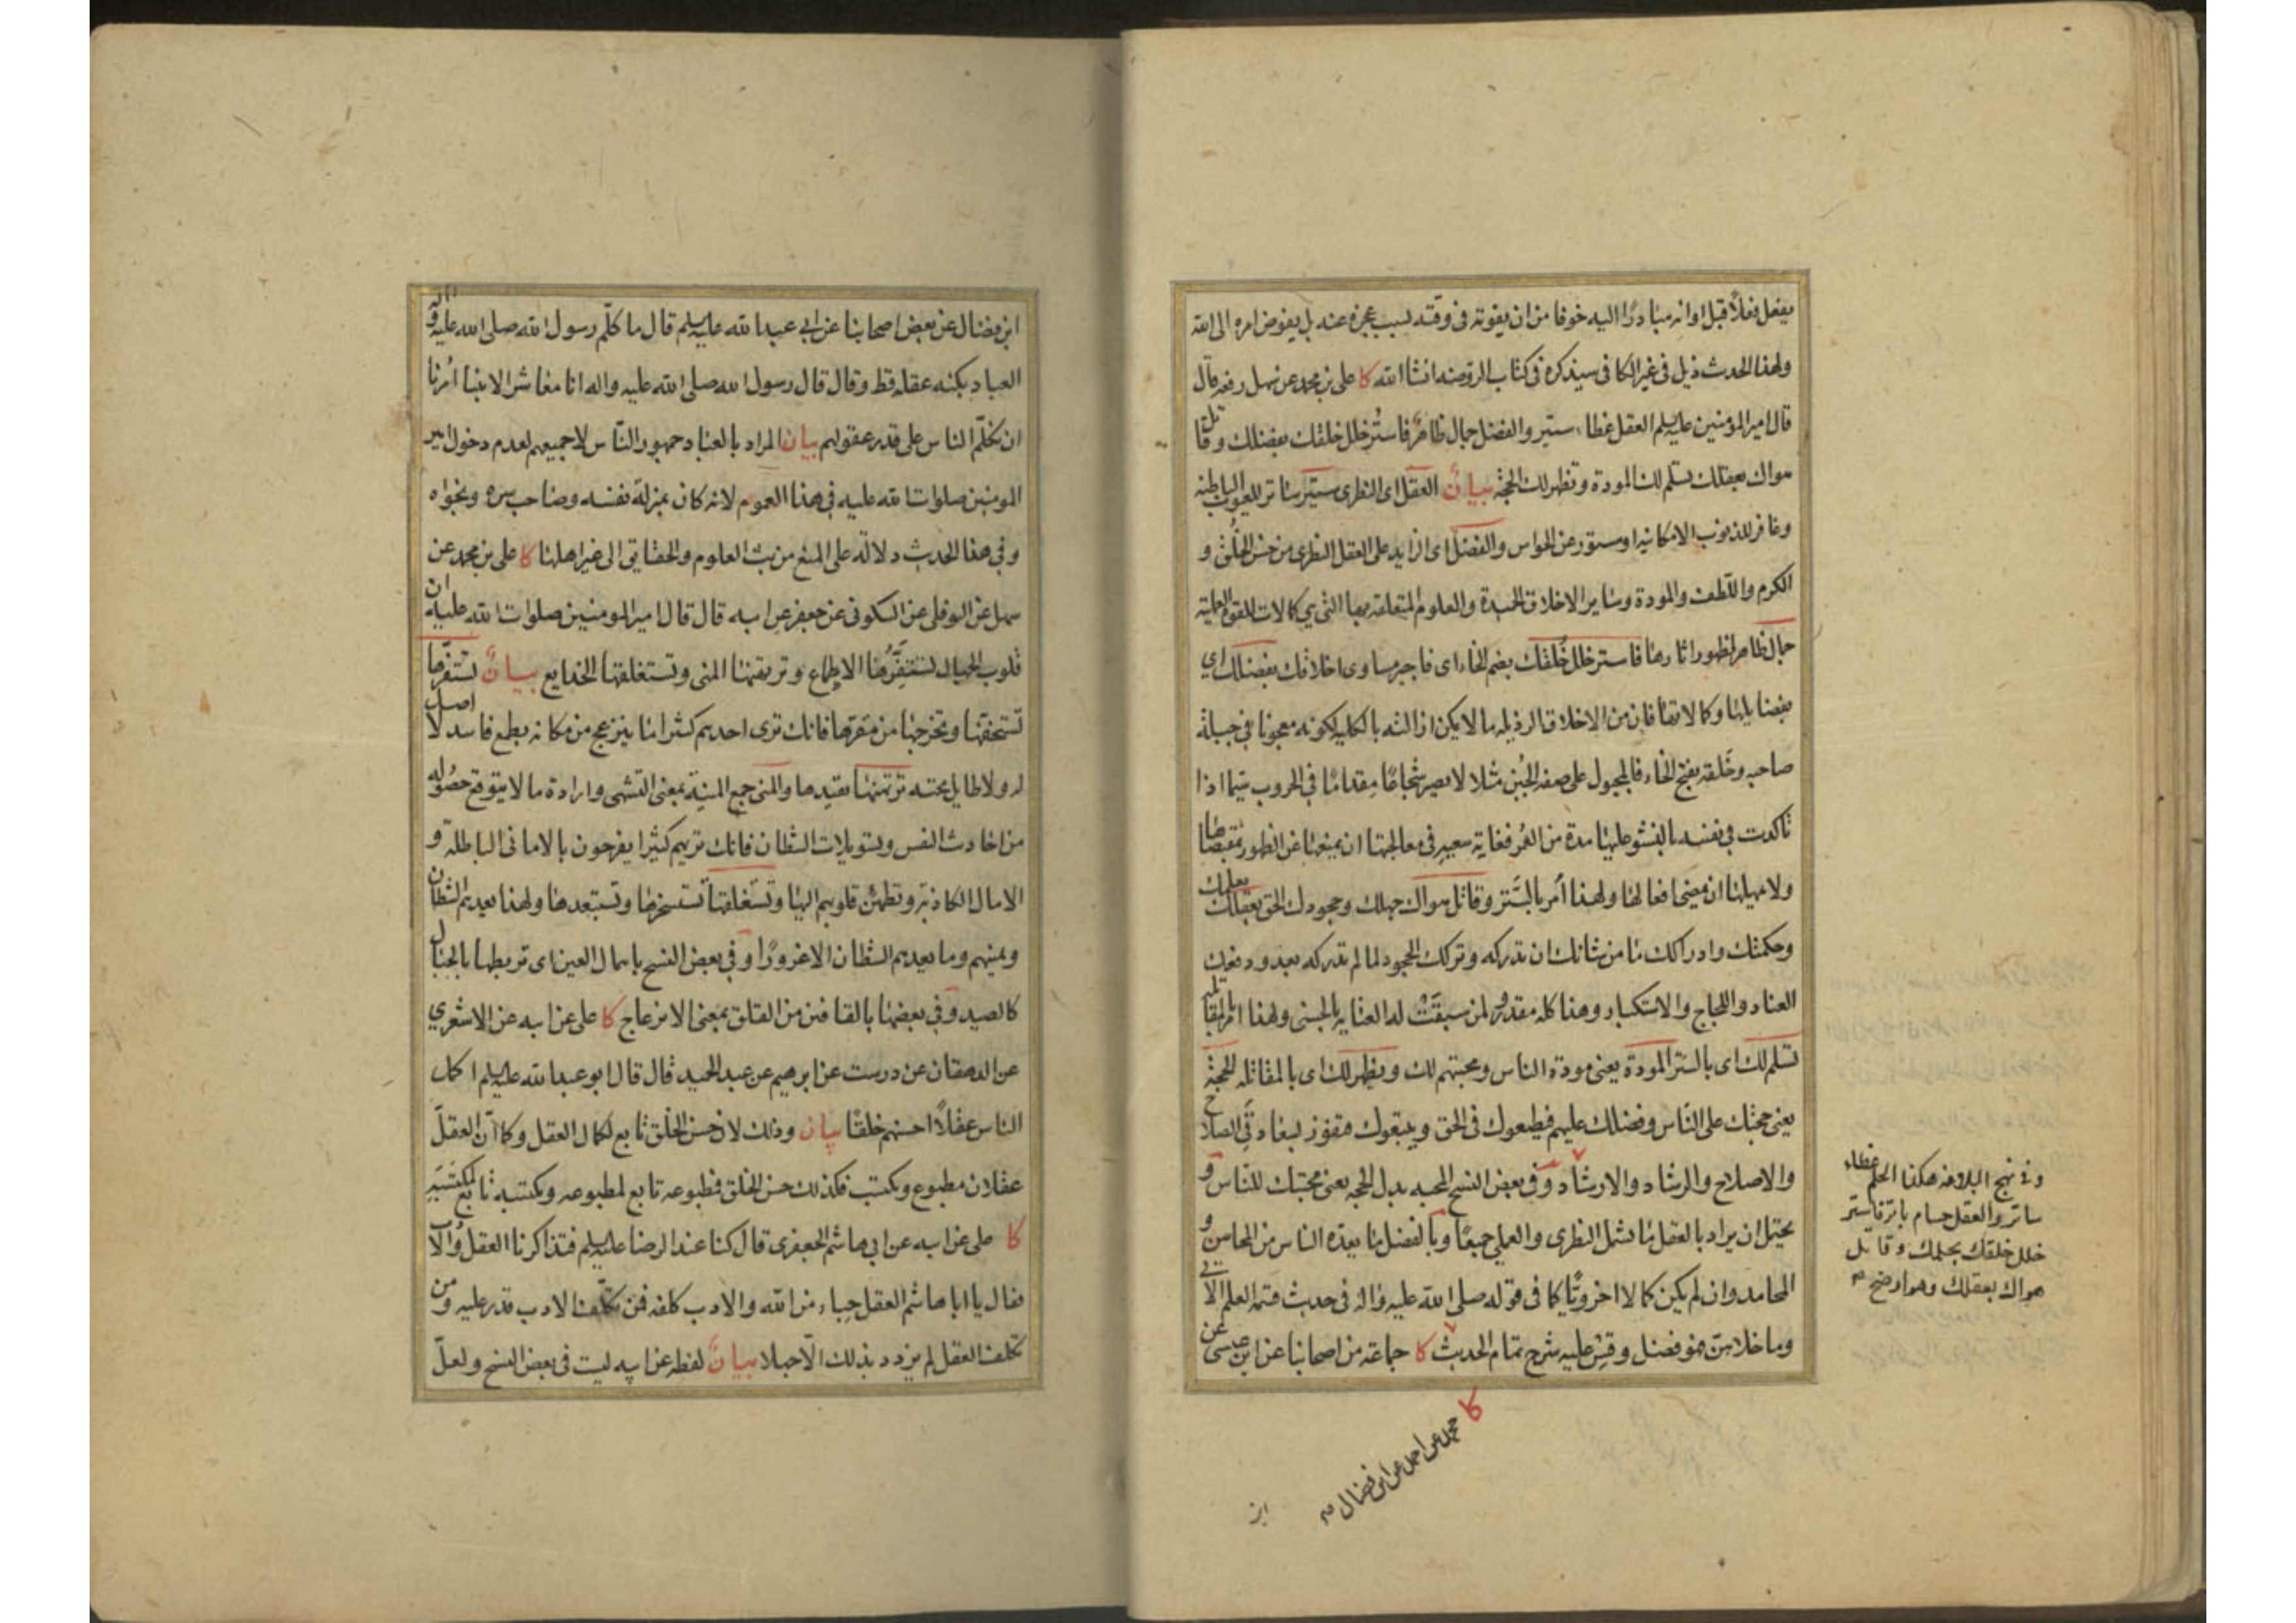 يفعل فعلاً قبل اوانه مبادرًا اليه خوفا من ان يفوته فى وقته لسبب عجزه عنه بل يفوض امره الى الله
ولهذا الحدث ذيل فى غير الكافى سيذكره فى كتاب الروضه انشاالله كا على بن محمد عن سهل رفعه قال
قال امير المؤمنين عليه‌السلم العقل غطاء ستير والفضل جمال ظاهر فاستُر خلل خلقك بفضلك وقاتل
هواك بعقلك تسلم لك المودة وتظهر لك الحجة بيانٌ العقل اى النظرى ستير ساتر للعيوب الباطنه
وغافر للذنوب الامكانيه او مستور عن الحواس والفضل اى الزايد على العقل النظرى من حسن الخُلُق و
الكرم واللّطف والمودة وساير الاخلاق الحميدة والعلوم المتعلقه بها التى هى كمالات للقوة العملية
جمال ظاهر لظهور اثارها فاستر خلل خُلقك بضم الخاء اى فاجبر مساوى اخلاقك بفضلك اى
بفضايلها وكمالاتها فان من الاخلاق الرذيله ما لا يمكن ازالته بالكليه لكونه معجونا فى جبلة
صاحبه وخَلقه بفتح الخاء فالمجبول على صفة الجُبن مثلا لا يصير شجاعًا مقدامًا فى الحروب سيما اذا
تاكدت فى نفسه بالنشو عليها مدة من العُمر فغاية سعيه فى معالجتها ان يمنعها عن الظهور بمقتضاها
ولا يمهلها ان يمضى افعالها ولهذا أمر بالسَّتر وقاتل هواك جهلك وجحودك الحق بعقلك بعلمك
وحكمتك وادراكك ما من شانك ان تدركه وتركك الجحود لما لم تدركه بعد ودفعك
العناد واللجاج والاستكبار وهذا كله مقدور لمن سبقَتْ له العناية بالحسنى ولهذا امر بالمقاتله
تسلم لك اى بالستر المودة يعنى مودة الناس ومحبتهم لك ويظهر لك اى بالمقاتله الحجة
يعنى حجتك على النَاس وفضلك عليهم فيطيعوك فى الحق ويتبعوك فتفوز بسعادتى الصلاح
والاصلاح والرشاد والارشاد وفى بعض النسخ المحبه بدل الحجه يعنى محبتك للناس و
يحتمل ان يراد بالعقل ما يشمل النظرى والعملى جميعًا وبالفضل ما يعده الناس من المحاسن و
المحامد وان لم يكن كمالا اخرويًّا كما فى قوله صلى الله عليه واله فى حديث قسمة العلم الاتى
وما خلاهنّ فهو فضل وقس عليه شرح تمام الحديث كا جماعته من اصحابنا عن ابن عيسى عن
وفى نهج البلاغه هكذا الحلم غطاء
ساتر والعقل حسام باتر فاستر
خلل خلقك بحلمك وقاتل
هواك بعقلك وهو اوضح
كا محمد عن احمد عن ابن فضال
ابن
ابن فضال عن بعض اصحابنا عن ابى عبدالله عليه‌السلم قال ما كلّم رسول الله صلى الله عليه واله
العباد بكنه عقله قط وقال قال رسول الله صلى الله عليه واله انا معاشر الانبيا اُمرنا
ان نكلّم الناس على قدر عقولهم بيان المراد بالعباد جمهور النّاس لا جميعهم لعدم دخول امير
المومنين صلوات الله عليه فى هذا العموم لانه كان بمنزلة نفسه وصاحب سره ونجواه
وفى هذا الحديث دلالة على المنع من بث العلوم والحقايق الى غير اهلها كا على بن محمد عن
سهل عن النوفلى عن السكونى عن جعفر عن ابيه قال قال امير المومنين صلوات الله عليه ان
قلوب الجهال تستفزُّها الاطماع وترتهنها المنى وتستغلقها الخدايع بيانٌ تستفزّها
تستخفها وتخرجها من مقرها فانك ترى احدهم كثيرا ما ينزعج من مكانه بطمع فاسد لا اصل
له ولا طايل تحته ترتهنها تقيدها والمنى جمع المنية بمعنى التشهى وارادة ما لا يتوقع حصوله
من احاديث النفس وتسويلات الشّطان فانك تريهم كثيرا يفرحون بالامانى الباطلة و
الامال الكاذبة وتطمئن قلوبهم اليها وتستغلقها تستسخرها وتستبعدها ولهذا يعدهم الشطان
ويمنيهم وما يعدهم الشّطان الا غرورًا وفى بعض النسخ باهمال العين اى تربطها بالحبال
كالصيد وفى بعضها بالقافين من القلق بمعنى الانزعاج كا على عن ابيه عن الاشعري
عن الدهقان عن درست عن ابرهيم عن عبد الحميد قال قال ابو عبدالله عليه‌السلم اكمل
الناس عقلاً احسنهم خلقًا بيان وذلك لان حسن الخلق تابع لكمال العقل وكما انّ العقل
عقلان مطبوع ومكتسب فكذلك حسن الخلق فمطبوعه تابع لمطبوعه ومكتسبه تابع لمكتسبه
كا على عن ابيه عن ابى هاشم الجعفرى قال كنا عند الرضا عليه‌السلم فتذاكرنا العقل والادب
فقال يا ابا هاشم العقل حِباء من الله والادب كلفه فمن تكلّف الادب قدر عليه ومن
تكلف العقل لم يزدد بذلك الّا جهلا بيانٌ لفظه عن ابيه ليست فى بعض النسخ ولعلّ